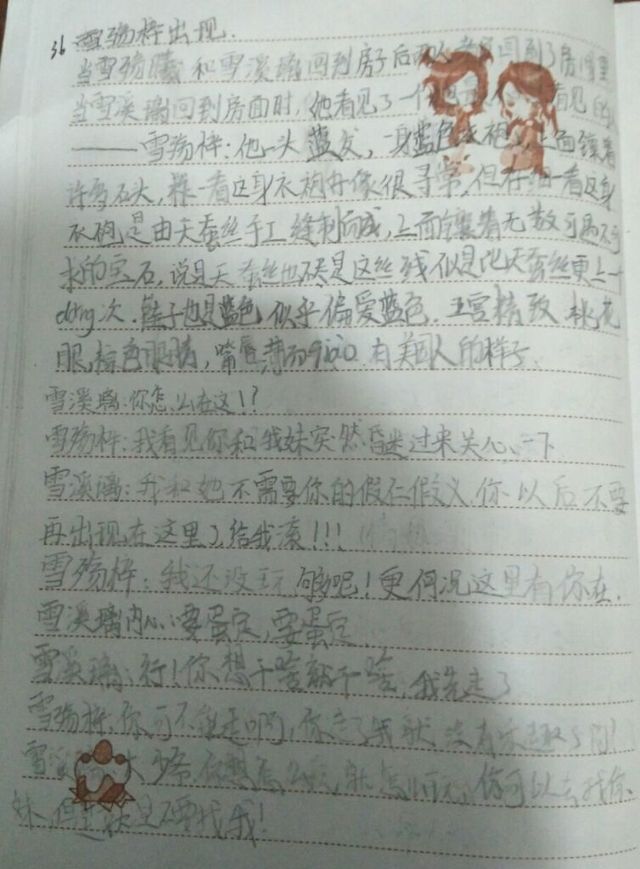 36 雪殇梓出现.
当雪殇曦和雪溪璃回到房子后 回到了房间里
当雪溪璃回到房面时,她看见了一个 看见的
——雪殇梓:他一头蓝发,一身蓝色衣袍,上面镶着
许多石头,粗一看这身衣袍好像很寻常,但仔细一看这身
衣袍是由天蚕丝手工缝制而成,上面镶着无数可遇不可
求的宝石,说是天蚕丝也不是这丝线似是比天蚕丝更上一
dang次.鞋子也是蓝色似乎偏爱蓝色.五官精致 桃花
眼,棕色眼睛,嘴唇薄而qiao有美国人的样子.
雪溪璃:你怎么在这!?
雪殇梓:我看见你和我妹突然昏迷过来关心一下
雪溪璃:我和她不需要你的假仁假义.你以后不要
再出现在这里了给我滚!!!
雪殇梓:我还没玩够呢!更何况这里有你在.
雪溪璃内心:要蛋定,要蛋定
雪溪璃:行!你想干啥就干啥.我先走了
雪殇梓:你可不能走啊,你走了我就没有乐趣了
雪 大少爷 你想怎么玩,就怎么玩,你可以去找你
妹,但是就是不要找我!